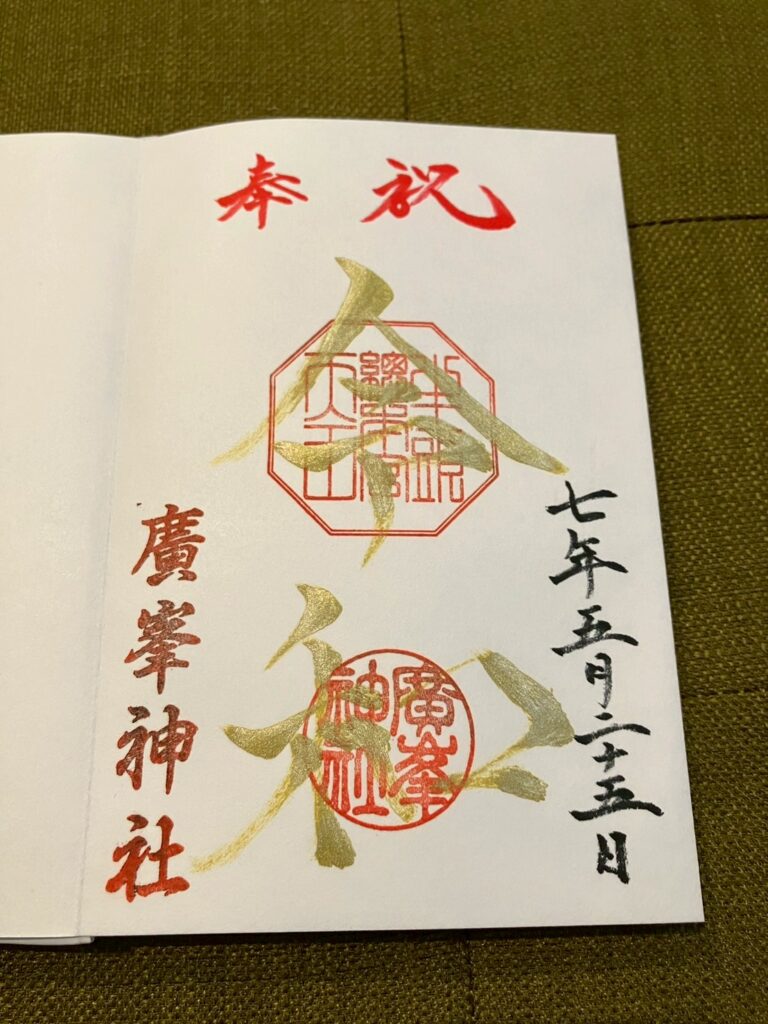 奉祝
令和
七年五月二十五日
廣峯
神社
廣峯神社